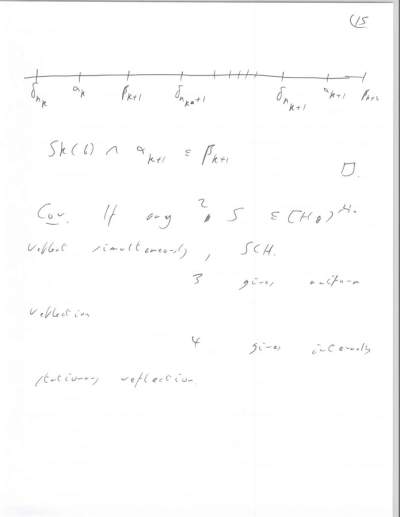 15
δ_{n_k} α_k β_{k+1} δ_{n_k+1} δ_{n_{k+1}} α_{k+1} β_{k+2}
Sk(6) ∩ α_{k+1} ∈ β_{k+1}
□.
Cor. If any 2 S ⊆ [H_θ]^{ℵ_0}
reflect simultaneously, SCH.
3 gives uniform
reflection
4 gives internally
stationary reflection.